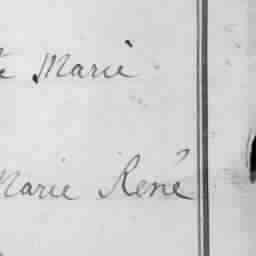 Marie
Marie René